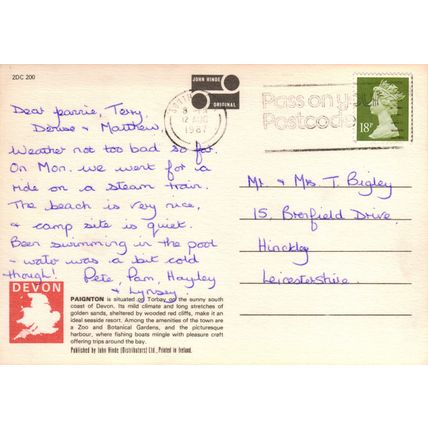 2DC 200
JOHN HINDE
ORIGINAL
12 AUG
1987
Pass on your
Postcode
18P
Dear Joannie, Terry,
Denise & Matthew,
Weather not too bad so far.
On Mon. we went for a
ride on a steam train.
The beach is very nice,
& camp site is quiet.
Been swimming in the pool
- water was a bit cold
though! Pete, Pam, Hayley
& Lynsey.
Mr. & Mrs T. Bigley
15, Brosfield Drive,
Hinckley
Leicestershire.
DEVON
PAIGNTON is situated on Torbay on the sunny south
coast of Devon. Its mild climate and long stretches of
golden sands, sheltered by wooded red cliffs, make it an
ideal seaside resort. Among the amenities of the town are
a Zoo and Botanical Gardens, and the picturesque
harbour, where fishing boats mingle with pleasure craft
offering trips around the bay.
Published by John Hinde (Distributors) Ltd., Printed in Ireland.